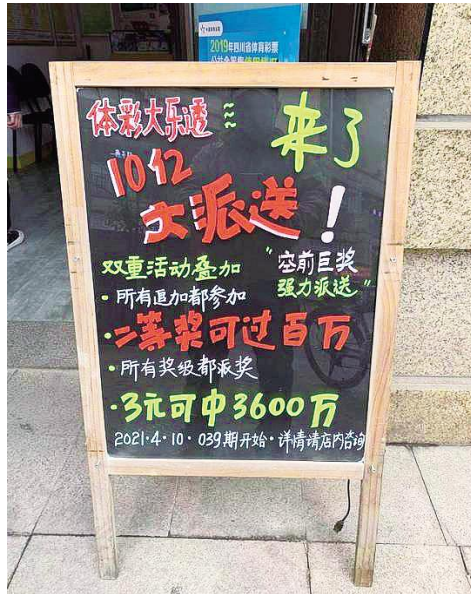 2019年四川省体育彩票
体彩大乐透
来了
10亿
大派送!
双重活动叠加
"空前巨奖
强力派送"
·所有追加都参加
·二等奖可过百万
·所有奖级都派奖
·3元可中3600万
2021·4·10·039期开始·详情请店内咨询